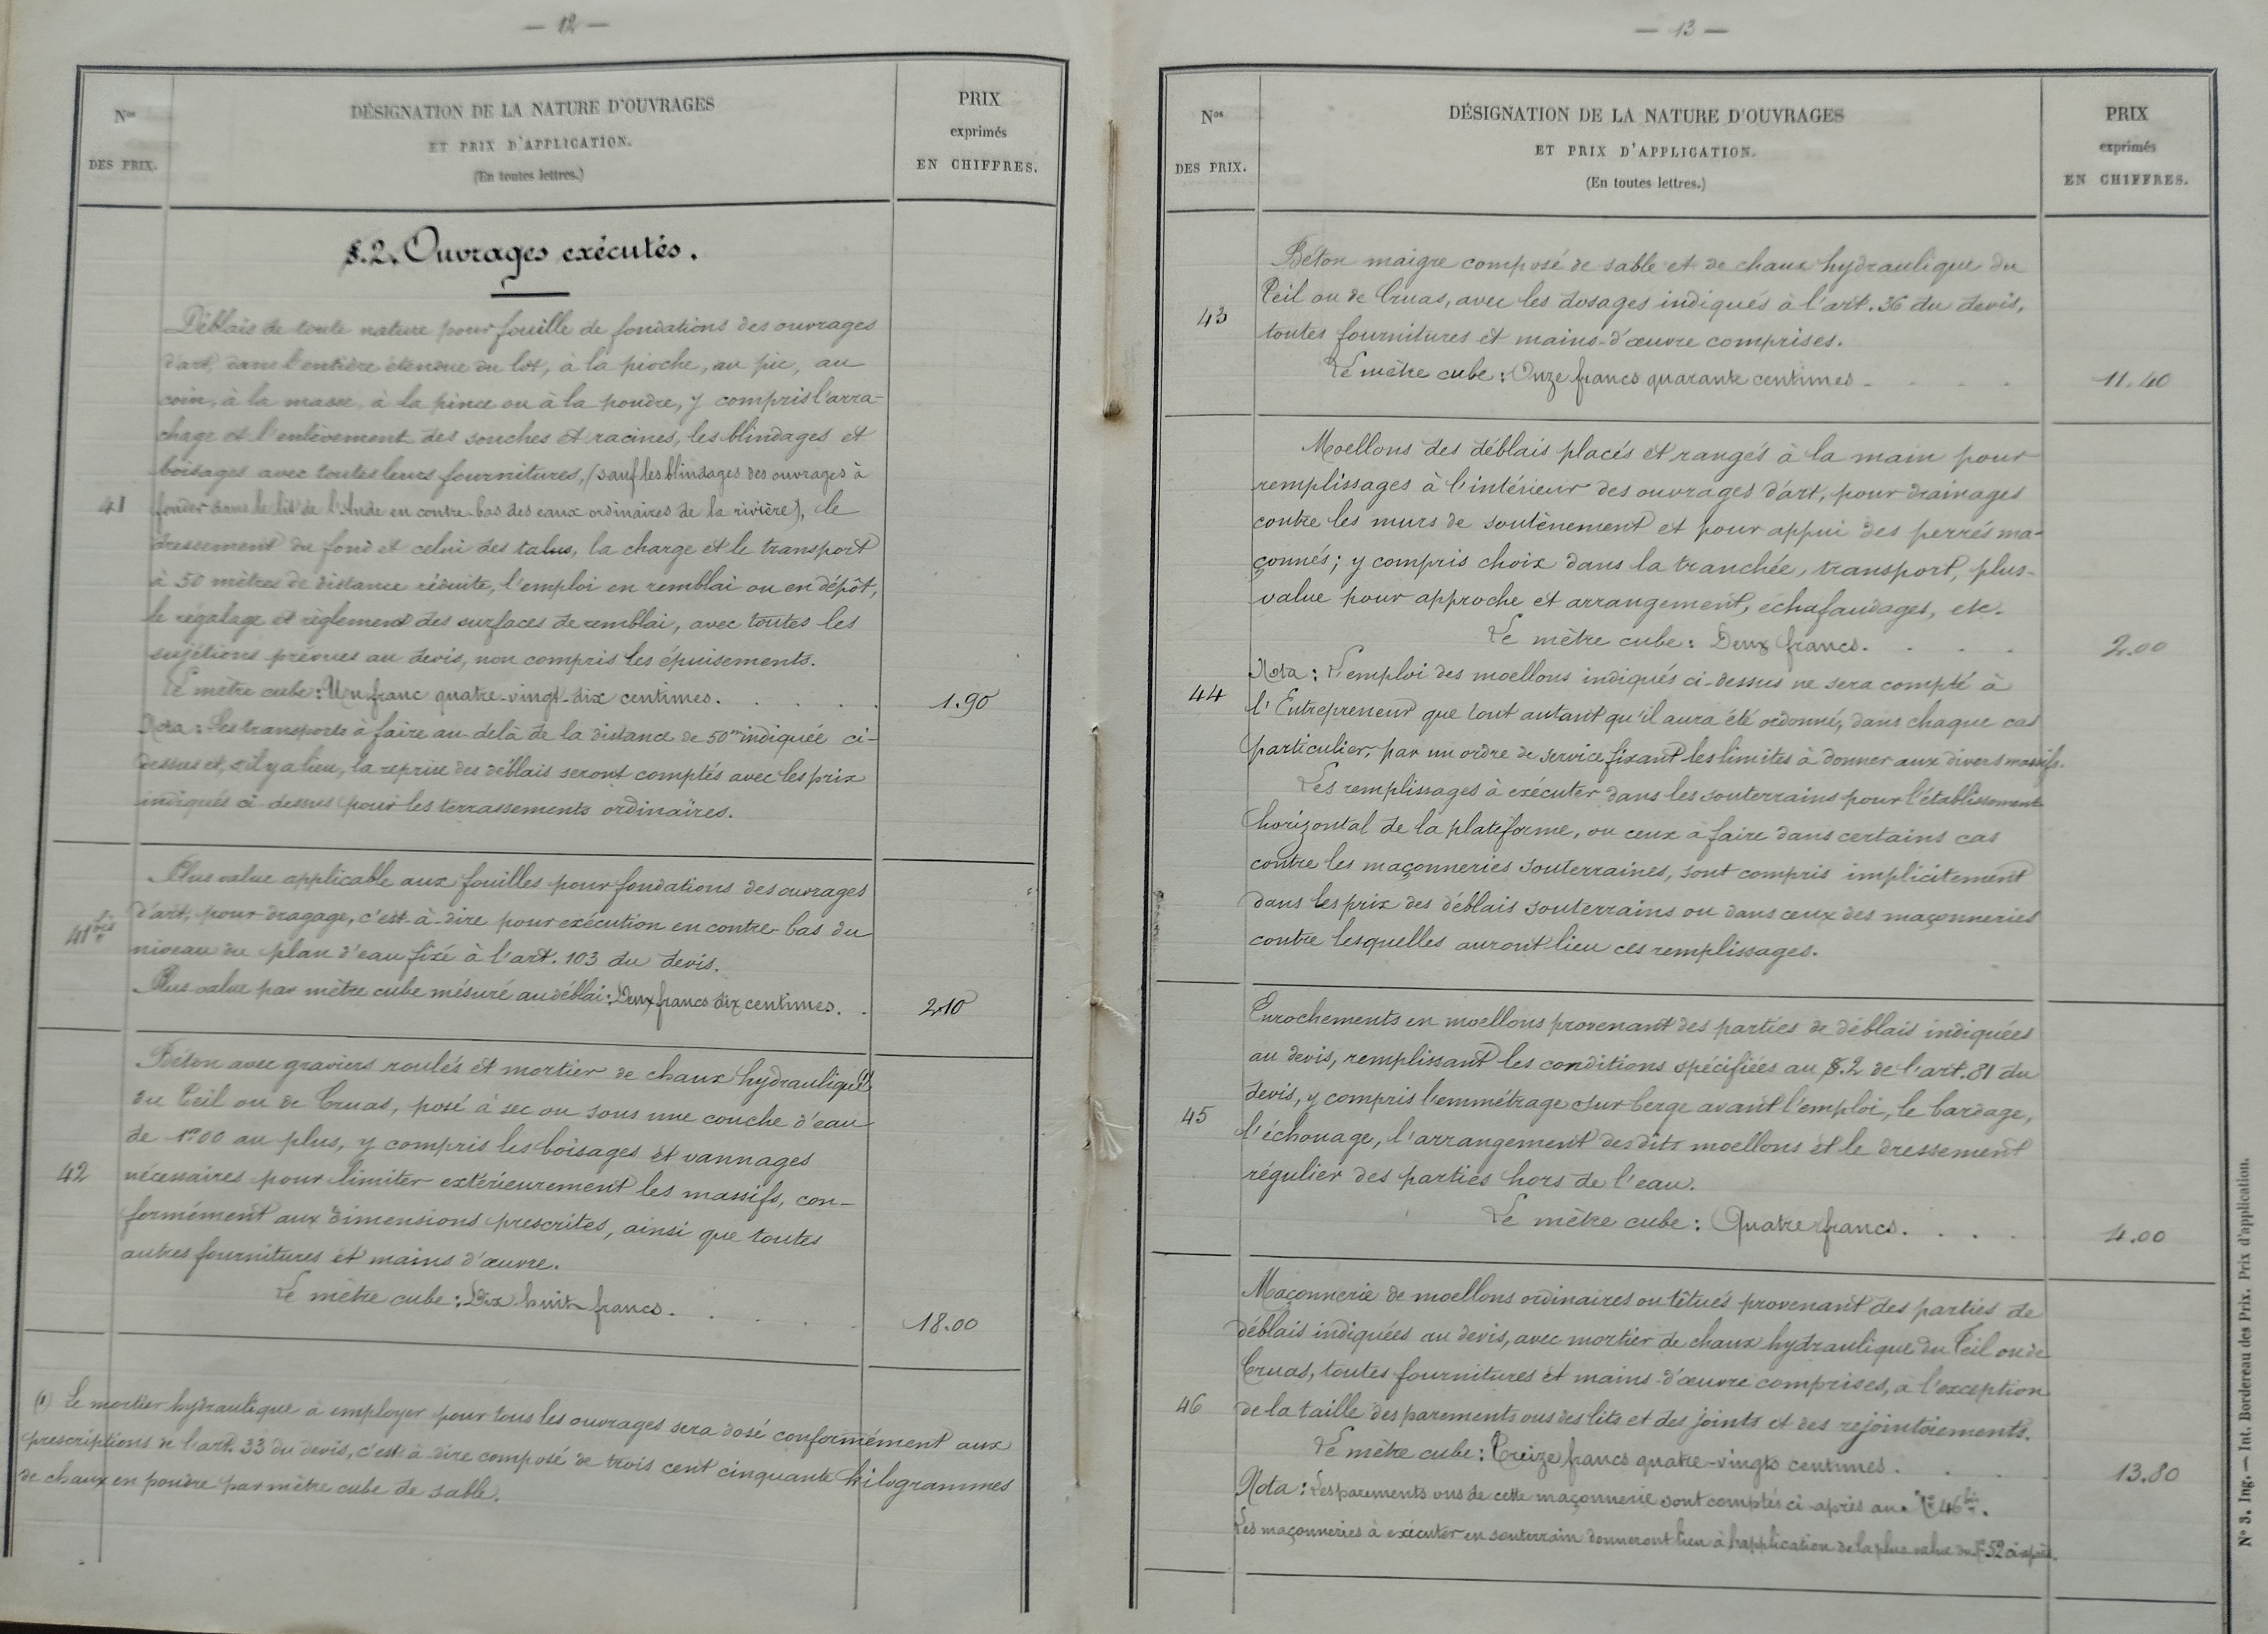 — 12 —
Nos
DES PRIX.
DÉSIGNATION DE LA NATURE D'OUVRAGES
ET PRIX D'APPLICATION.
(En toutes lettres.)
PRIX
exprimés
EN CHIFFRES.
§.2. Ouvrages exécutés.
Déblais de toute nature pour fouille de fondations des ouvrages
d'art, dans l'entière étendue du lot, à la pioche, au pic, au
coin, à la masse, à la pince ou à la poudre, y compris l'arra-
chage et l'enlèvement des souches et racines, les blindages et
boisages avec toutes leurs fournitures, (sauf les blindages des ouvrages à
41 fonder dans le lit de l'Aude en contre-bas des eaux ordinaires de la rivière), le
dressement du fond et celui des talus, la charge et le transport
à 50 mètres de distance réduite, l'emploi en remblai ou en dépôt,
le régalage et règlement des surfaces de remblai, avec toutes les
sujétions prévues au devis, non compris les épuisements.
Le mètre cube : Un franc quatre-vingt-dix centimes. . . . . 1.90
Nota : Les transports à faire au-delà de la distance de 50m indiquée ci-
dessus et, s'il y a lieu, la reprise des déblais seront comptés avec les prix
indiqués ci-dessus pour les terrassements ordinaires.
Plus value applicable aux fouilles pour fondations des ouvrages
d'art, pour dragage, c'est-à-dire pour exécution en contre-bas du
41bis niveau du plan d'eau fixé à l'art. 103 du devis.
Plus-value par mètre cube mésuré au déblai : Deux francs dix centimes. . 2.10
Béton avec graviers roulés et mortier de chaux hydraulique (1)
du Teil ou de Cruas, posé à sec ou sous une couche d'eau
de 1m00 au plus, y compris les boisages et vannages
42 nécessaires pour limiter extérieurement les massifs, con-
formément aux dimensions prescrites, ainsi que toutes
autres fournitures et mains d'œuvre.
Le mètre cube : Dix huit francs. . . . . 18.00
(1) Le mortier hydraulique à employer pour tous les ouvrages sera dosé conformément aux
prescriptions de l'art. 33 du devis, c'est à dire composé de trois cent cinquante kilogrammes
de chaux en poudre par mètre cube de sable.
— 13 —
Nos
DES PRIX.
DÉSIGNATION DE LA NATURE D'OUVRAGES
ET PRIX D'APPLICATION.
(En toutes lettres.)
PRIX
exprimés
EN CHIFFRES.
Béton maigre composé de sable et de chaux hydraulique du
Teil ou de Cruas, avec les dosages indiqués à l'art. 36 du devis,
43 toutes fournitures et mains-d'œuvre comprises.
Le mètre cube : Onze francs quarante centimes . . . . 11.40
Moellons des déblais placés et rangés à la main pour
remplissages à l'intérieur des ouvrages d'art, pour drainages
contre les murs de soutènement et pour appui des perrés ma-
çonnés ; y compris choix dans la tranchée, transport, plus-
value pour approche et arrangement, échafaudages, etc.
Le mètre cube : Deux francs. . . . . 2.00
Nota : L'emploi des moellons indiqués ci-dessus ne sera compté à
44 l'Entrepreneur que tout autant qu'il aura été ordonné, dans chaque cas
particulier, par un ordre de service fixant les limites à donner aux divers massifs.
Les remplissages à exécuter dans les souterrains pour l'établissement
horizontal de la plateforme, ou ceux à faire dans certains cas
contre les maçonneries souterraines, sont compris implicitement
dans les prix des déblais souterrains ou dans ceux des maçonneries
contre lesquelles auront lieu ces remplissages.
Enrochements en moellons provenant des parties de déblais indiquées
au devis, remplissant les conditions spécifiées au §.2 de l'art. 81 du
devis, y compris l'emmétrage sur berge avant l'emploi, le bardage,
45 l'échouage, l'arrangement des dits moellons et le dressement
régulier des parties hors de l'eau.
Le mètre cube : Quatre francs. . . . . 4.00
Maçonnerie de moellons ordinaires ou têtués provenant des parties de
déblais indiquées au devis, avec mortier de chaux hydraulique du Teil ou de
Cruas, toutes fournitures et mains-d'œuvre comprises, à l'exception
46 de la taille des parements vus des lits et des joints et des rejointoiements.
Le mètre cube : Treize francs quatre-vingts centimes. . . . 13.80
Nota : Les parements vus de cette maçonnerie sont comptés ci-après au No 46bis.
Les maçonneries à exécuter en souterrain donneront lieu à l'application de la plus-value du No 52 ci-après.
No 3. Ing. — Int. Bordereau des Prix. Prix d'application.